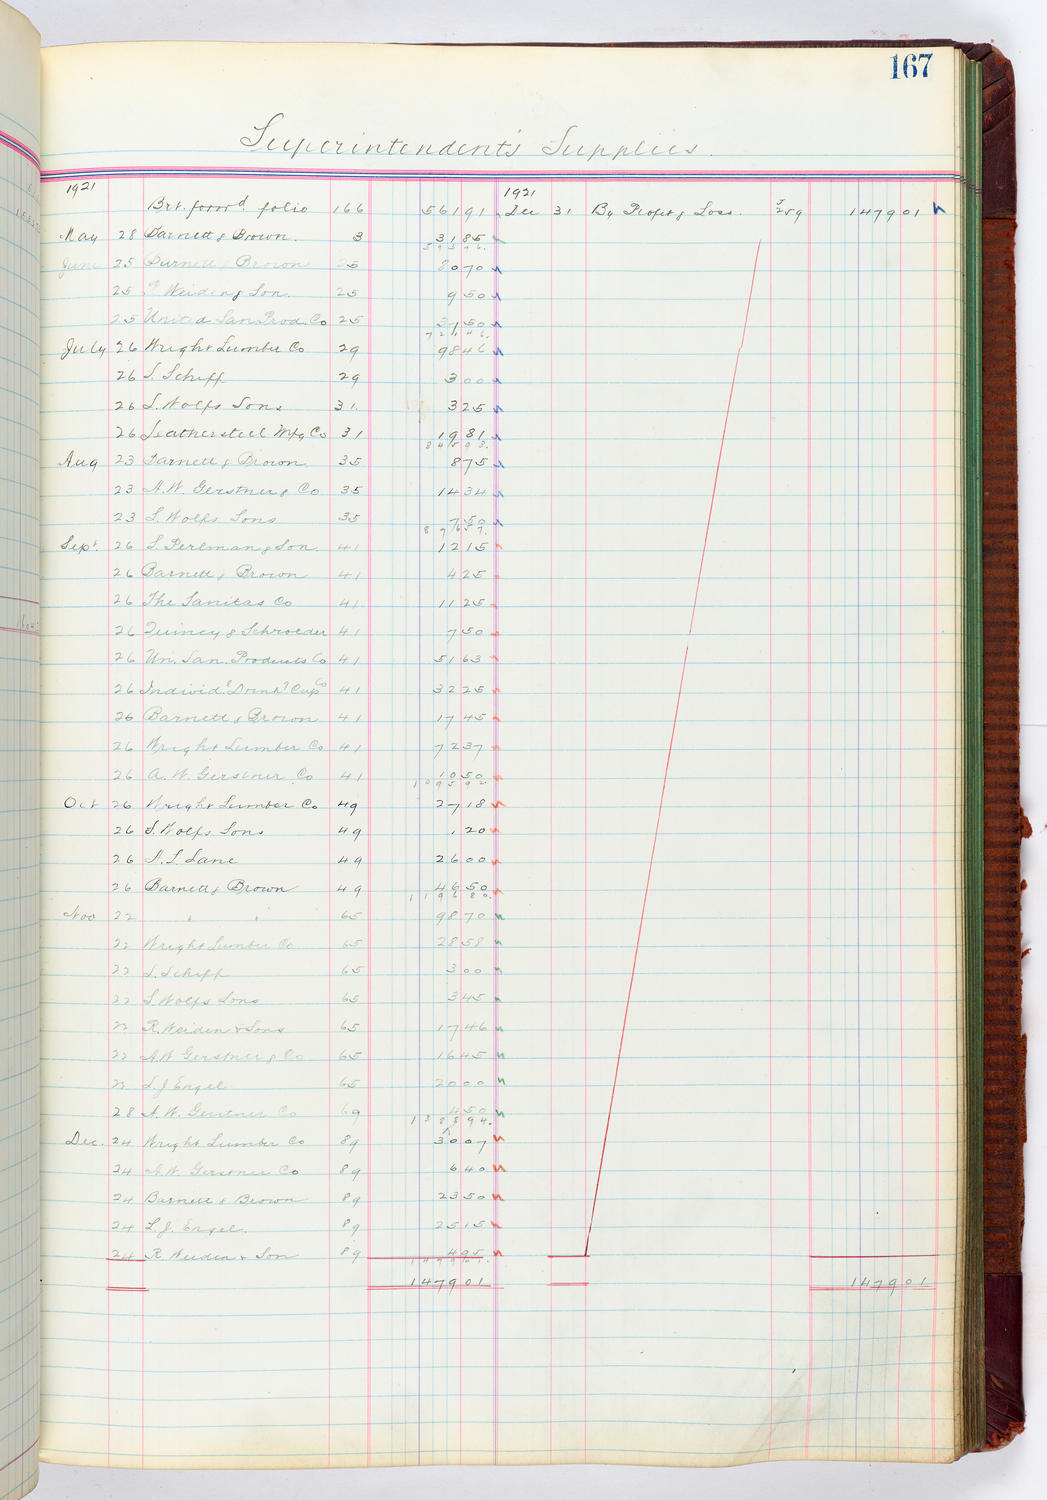 167
Superintendent's Supplies
1921 1921
Brt. forw'd. folio 166 56191 Dec 31 By Profit & Loss. J259 147901
May 28 Barnett & Brown. 3 3185
59376.
June 25 Barnett & Brown 25 8070
25 Weiden & Son. 25 950
25 United San. Prod. Co 25 3750
72146.
July 26 Wright Lumber Co 29 9846
26 S. Schiff 29 300
26 S. Wolfs Sons 31. 325
26 Leathersteel Mfg. Co 31 1981
84598.
Aug 23 Barnett & Brown. 35 875
23 A.W. Gerstner & Co 35 1434
23 S. Wolfs Sons 35 750
87657.
Sept. 26 S. Perlman & Son. 41 1215
26 Barnett & Brown 41 425
26 The Sanitas Co 41 1125
26 Quincy & Schroeder 41 750
26 Un. San. Products Co 41 5163
26 Individl Drinkg Cup Co 41 3225
26 Barnett & Brown 41 1745
26 Wright Lumber Co 41 7237
26 A.W. Gerstner Co 41 1050
109592
Oct 26 Wright Lumber Co 49 2718
26 S. Wolfs Sons 49 120
26 A. L. Lane 49 2600
26 Barnett & Brown 49 4650
119680.
Nov 22 " " 65 9870
22 Wright Lumber Co 65 2858
22 S. Schiff 65 300
22 S Wolfs Sons 65 345
22 R. Weiden & Sons 65 1746
22 A.W Gerstner & Co 65 1645
22 L. J Engel 65 2000
28 A.W. Gerstner Co 69 450
138894.
Dec. 24 Wright Lumber Co 89 3007
24 A.W. Gerstner Co 89 640
24 Barnett & Brown 89 2350
24 L. J. Engel. 89 2515
24 R. Weiden & Son 89 495
147901.
147901 147901